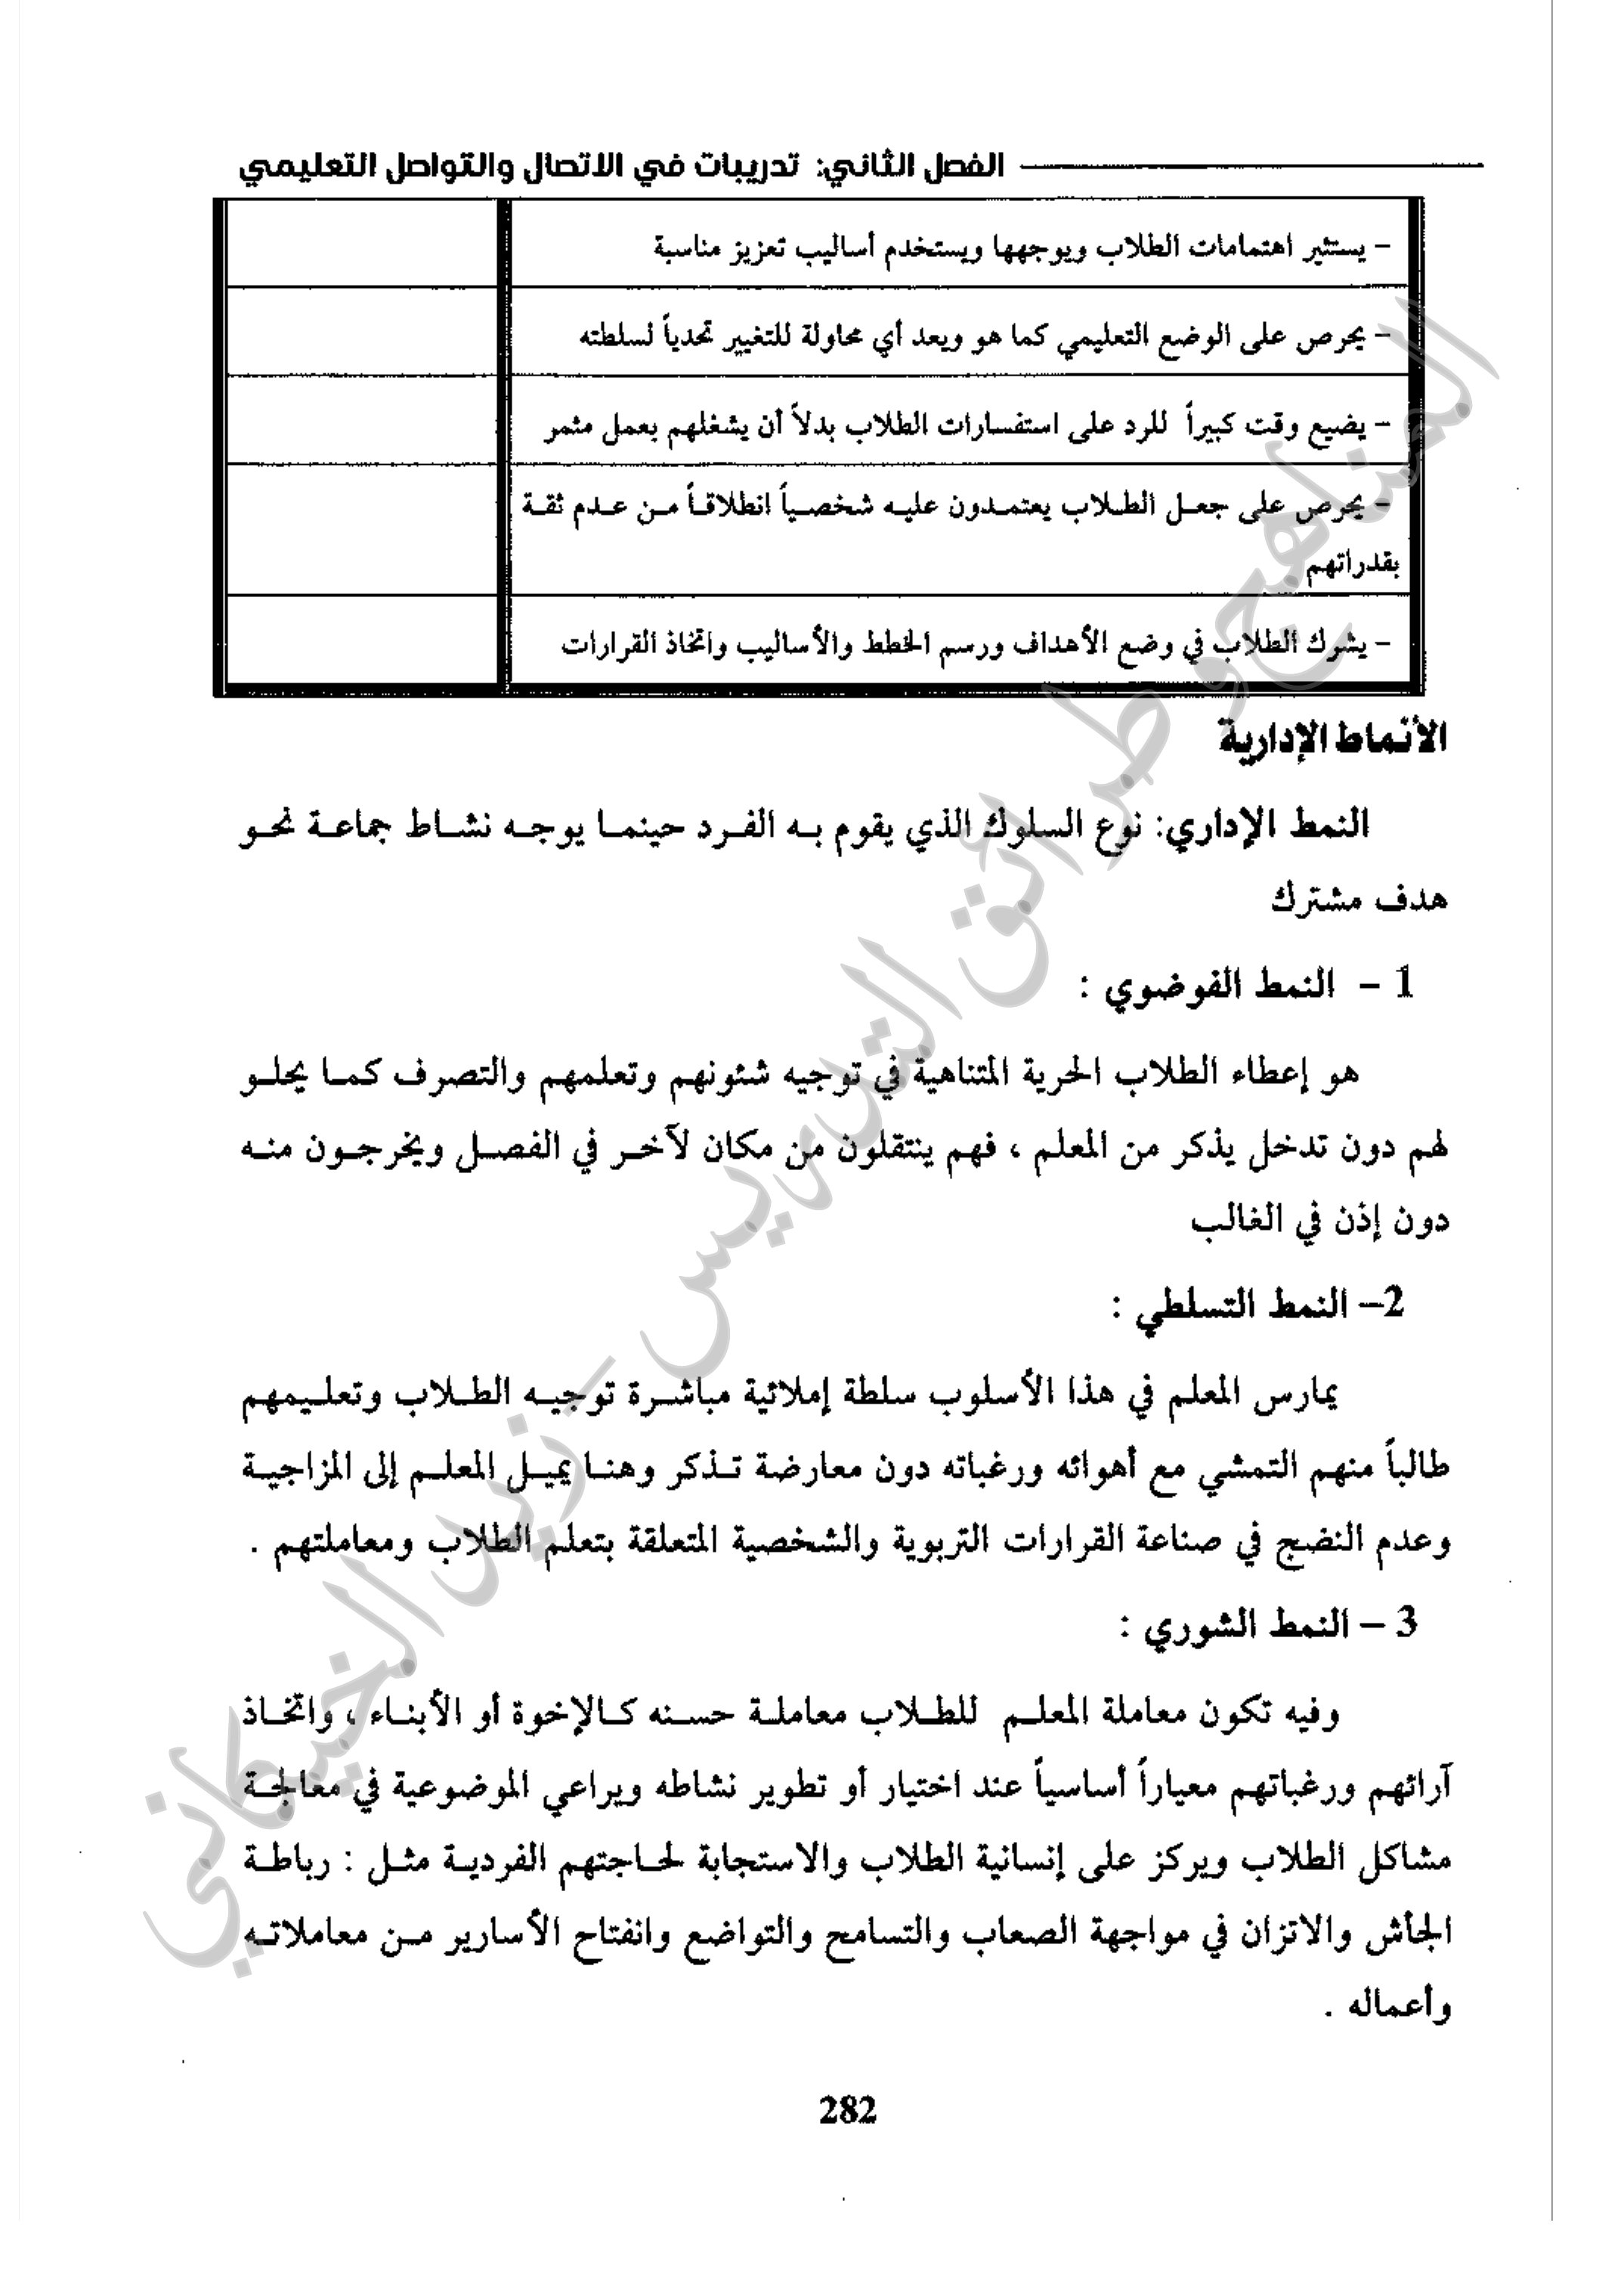 الفصل الثاني: تدريبات في الاتصال والتواصل التعليمي
- يستثير اهتمامات الطلاب ويوجهها ويستخدم أساليب تعزيز مناسبة
- يحرص على الوضع التعليمي كما هو ويعد أي محاولة للتغيير تحدياً لسلطته
- يضيع وقت كبيراً للرد على استفسارات الطلاب بدلاً أن يشغلهم بعمل مثمر
- يحرص على جعل الطلاب يعتمدون عليه شخصياً انطلاقاً من عدم ثقة
بقدراتهم
- يشرك الطلاب في وضع الأهداف ورسم الخطط والأساليب واتخاذ القرارات
الأنماط الإدارية
النمط الإداري: نوع السلوك الذي يقوم به الفرد حينما يوجه نشاط جماعة نحو
هدف مشترك
1 - النمط الفوضوي :
هو إعطاء الطلاب الحرية المتناهية في توجيه شئونهم وتعلمهم والتصرف كما يحلو
لهم دون تدخل يذكر من المعلم ، فهم ينتقلون من مكان لآخر في الفصل ويخرجون منه
دون إذن في الغالب
2- النمط التسلطي :
يمارس المعلم في هذا الأسلوب سلطة إملائية مباشرة توجيه الطلاب وتعليمهم
طالباً منهم التمشي مع أهوائه ورغباته دون معارضة تذكر وهنا يميل المعلم إلى المزاجية
وعدم النضج في صناعة القرارات التربوية والشخصية المتعلقة بتعلم الطلاب ومعاملتهم .
3 - النمط الشوري :
وفيه تكون معاملة المعلم للطلاب معاملة حسنه كالإخوة أو الأبناء ، واتخاذ
آرائهم ورغباتهم معياراً أساسياً عند اختيار أو تطوير نشاطه ويراعي الموضوعية في معالجة
مشاكل الطلاب ويركز على إنسانية الطلاب والاستجابة لحاجتهم الفردية مثل : رباطة
الجأش والاتزان في مواجهة الصعاب والتسامح والتواضع وانفتاح الأسارير من معاملاته
وأعماله .
282
المناهج وطرائق التدريس - زيد الخيكاني